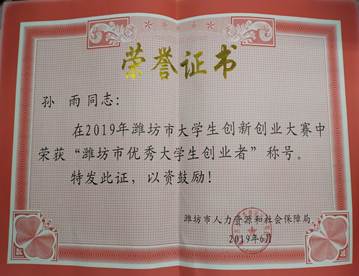 荣誉证书
孙 雨同志：
在2019年潍坊市大学生创新创业大赛中
荣获“潍坊市优秀大学生创业者”称号。
特发此证，以资鼓励！
潍坊市人力资源和社会保障局
2019年6月